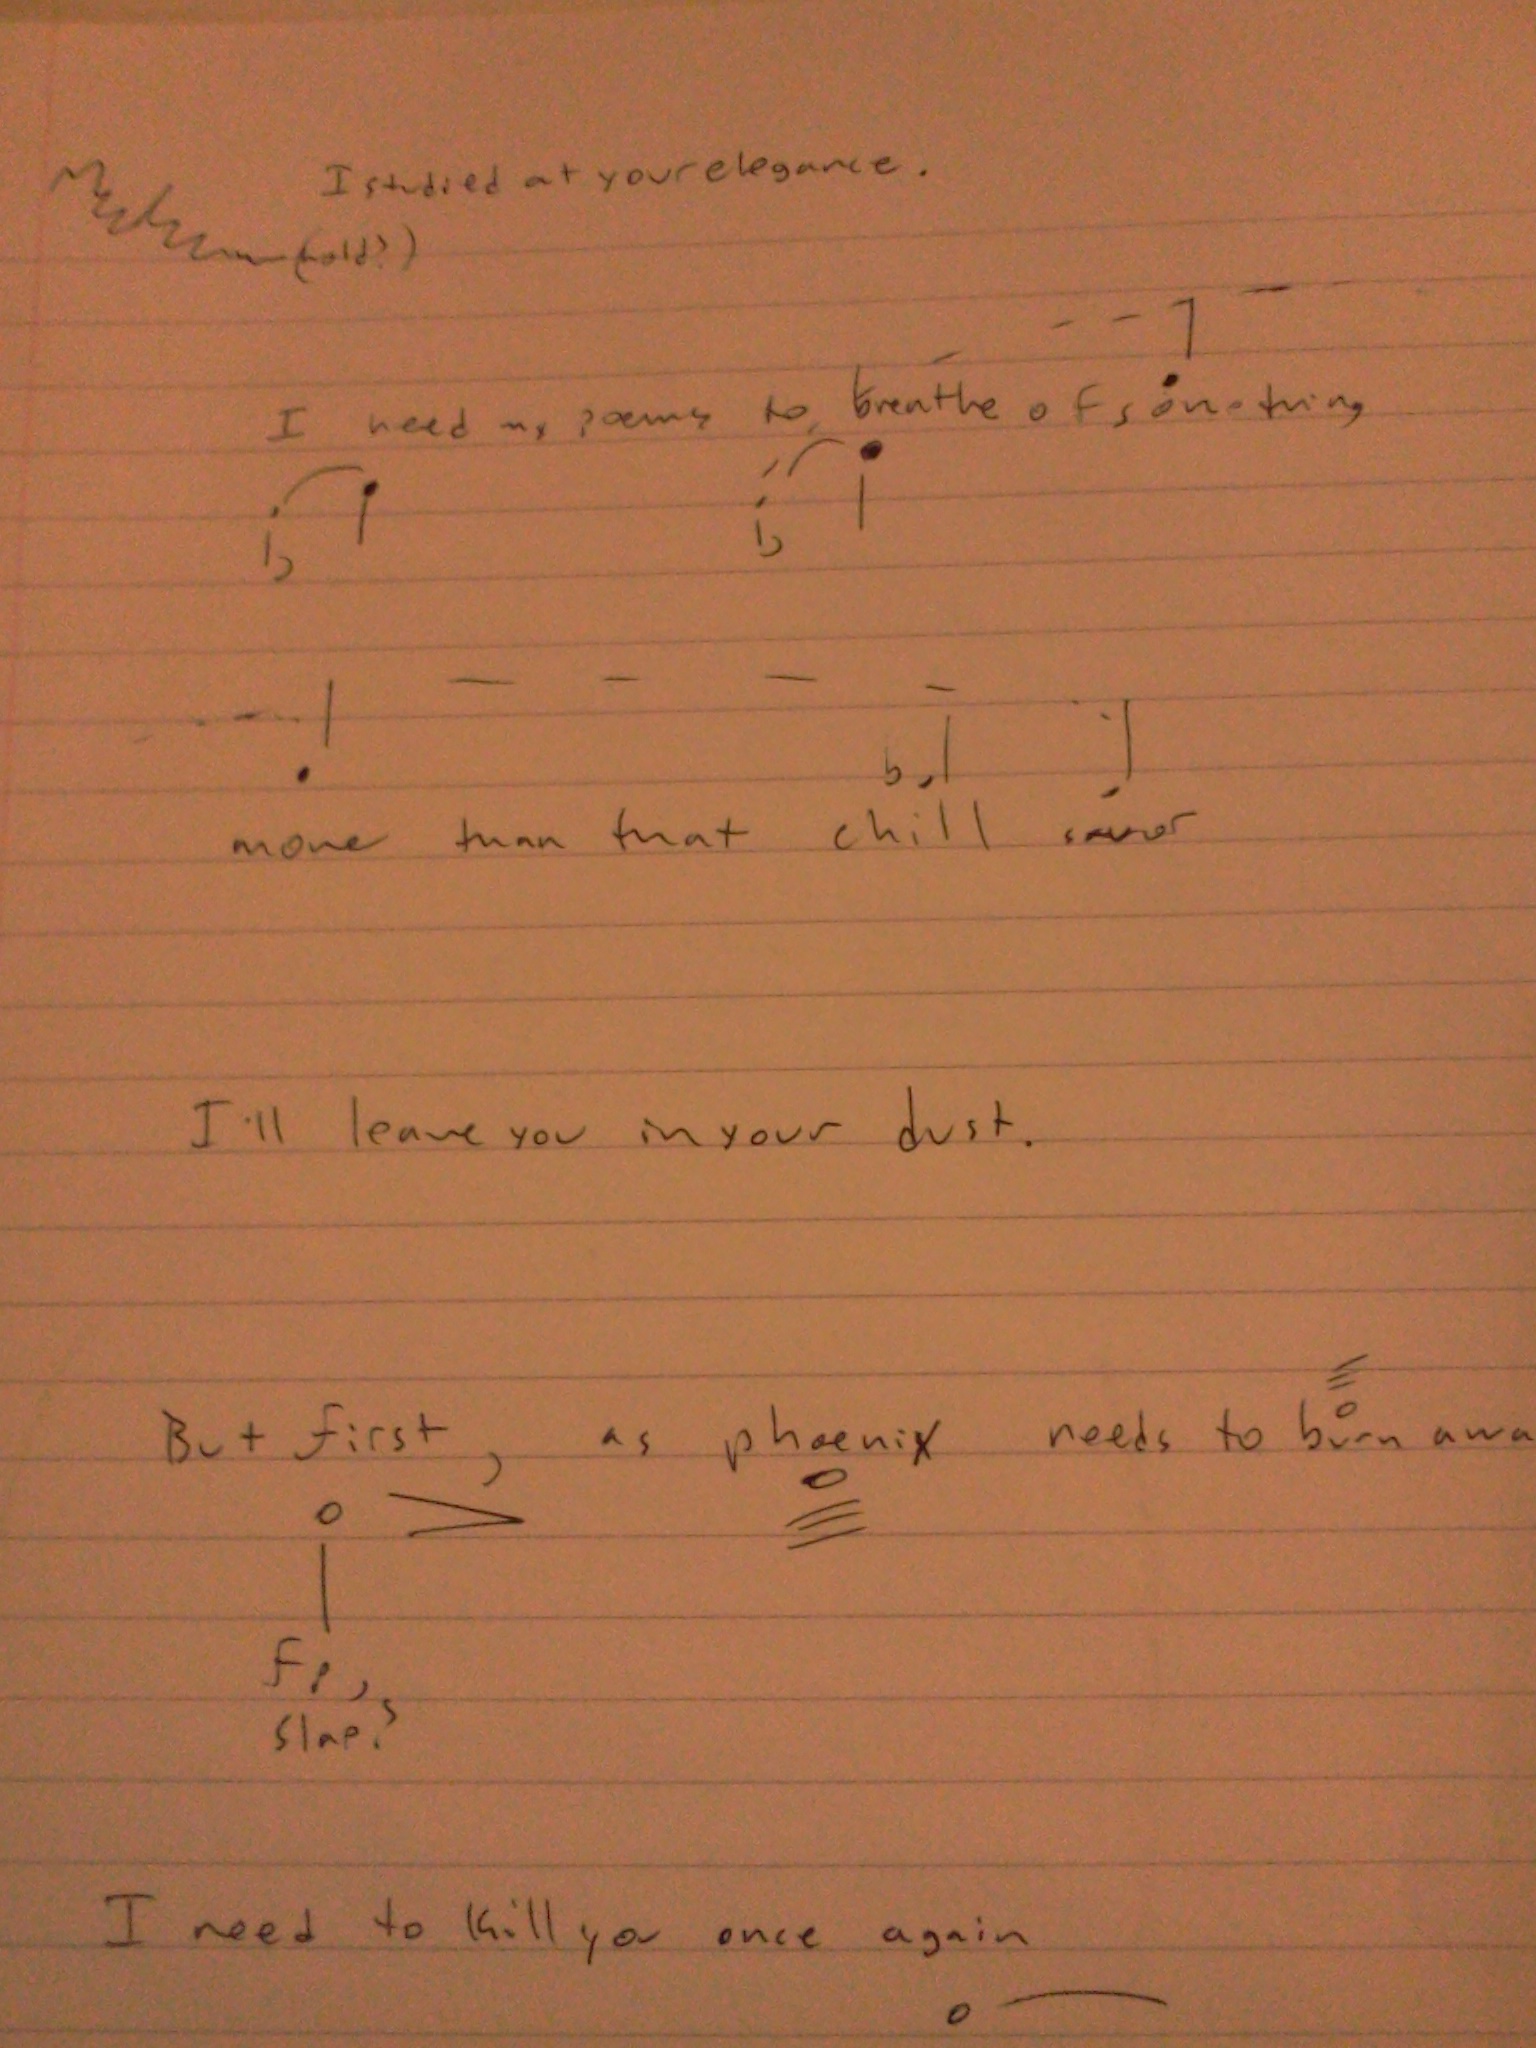 I studied at your elegance.
(hold?)
I need my poems to breathe of something
more than that chill
I'll leave you in your dust.
But first, as phoenix needs to burn awa
fp,
slap?
I need to kill you once again